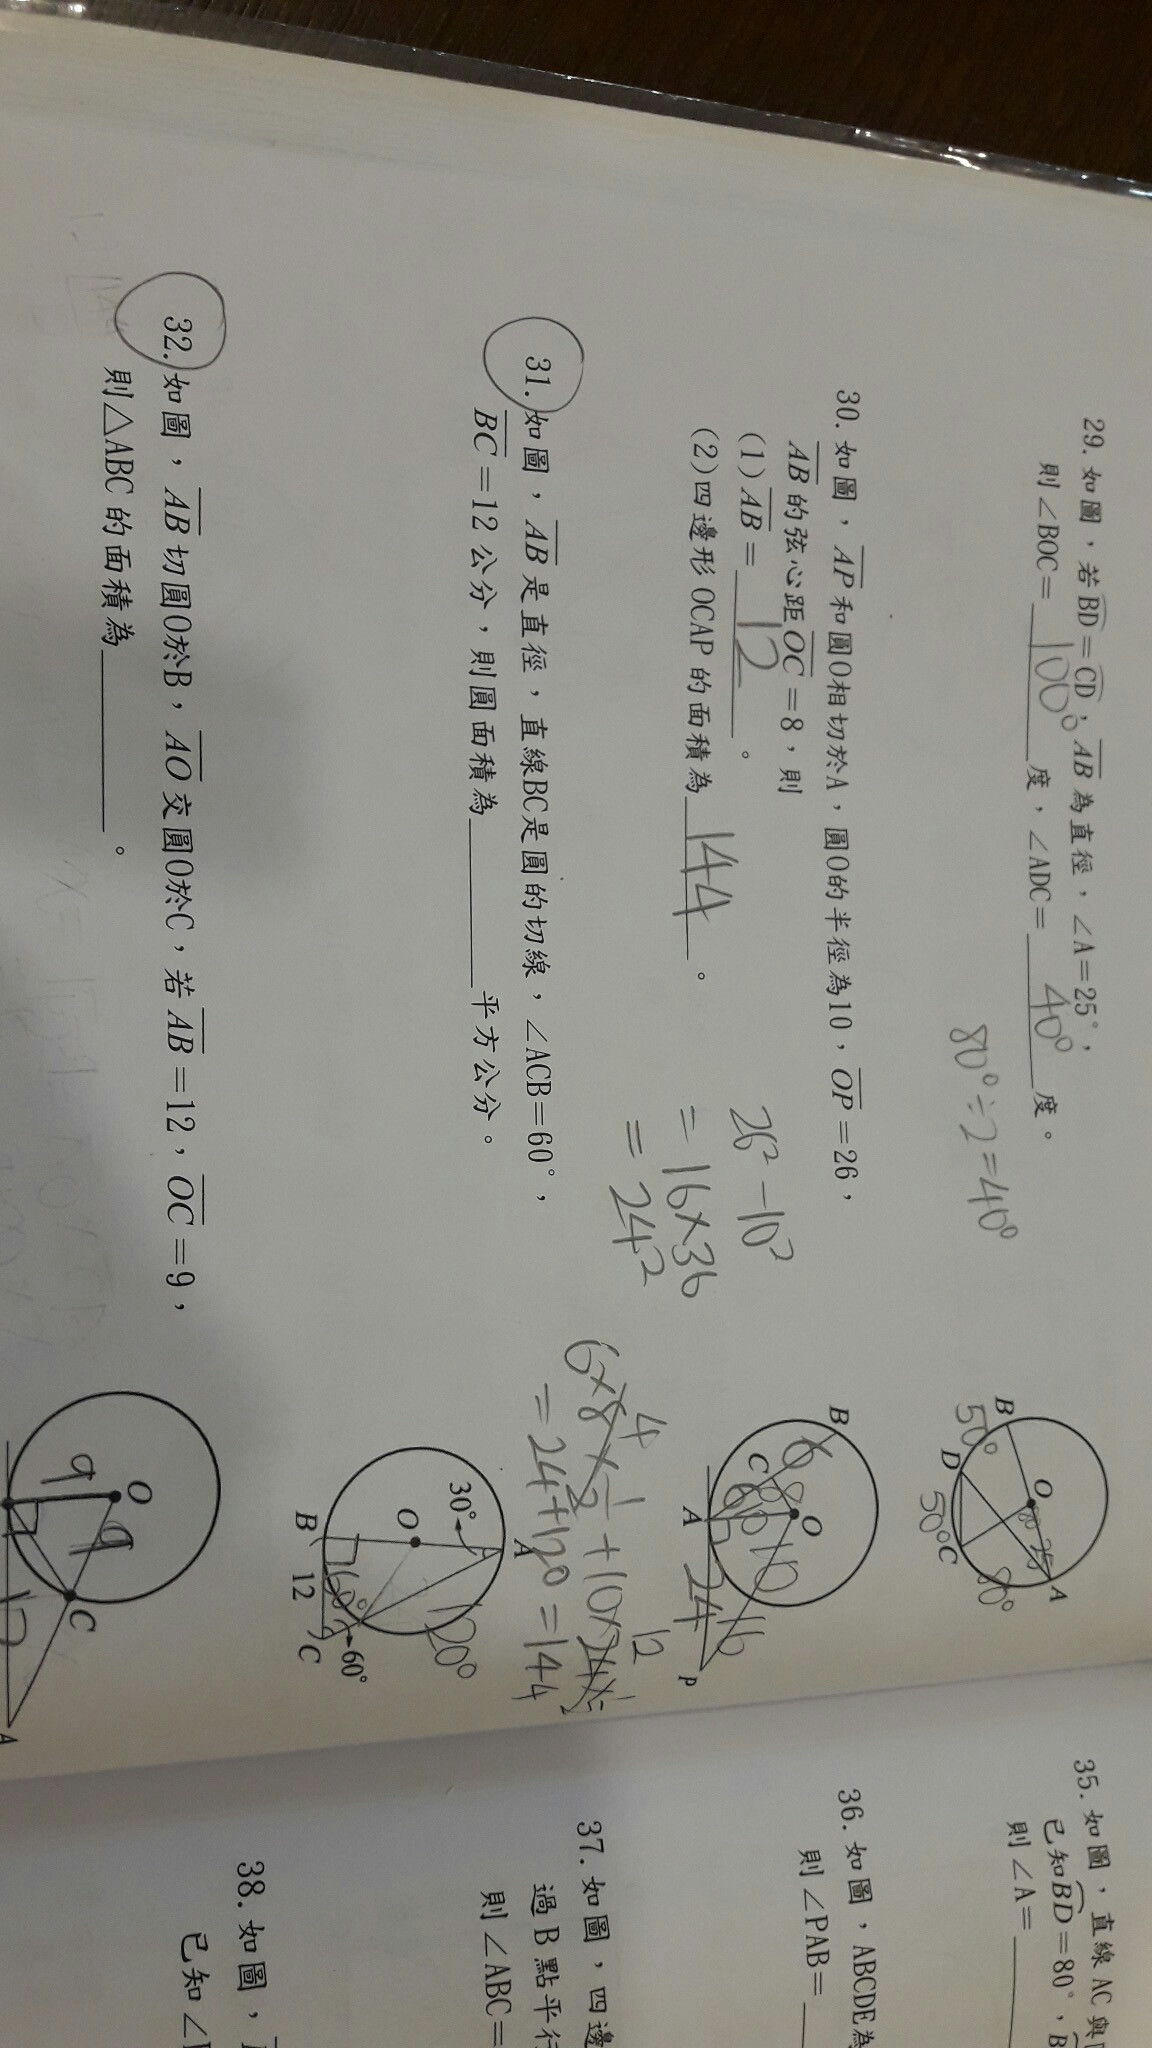 29. 如圖，若BD=CD，AB為直徑，∠A=25°，
則∠BOC=100°度，∠ADC=40°度。
80°÷2=40°
B
50°
D
50°
C
O
80°
25
A
80°
30. 如圖，AP和圓O相切於A，圓O的半徑為10，OP=26，
AB的弦心距OC=8，則
(1)AB=12。
(2)四邊形OCAP的面積為144。
26²-10²
=16×36
=24²
B
6
C
8
O
10
16
A
24
P
6×8×1/2+10×24×1/2
4
12
=24+120=144
31. 如圖，AB是直徑，直線BC是圓的切線，∠ACB=60°，
BC=12公分，則圓面積為______平方公分。
A
30°
O
120°
B
12
60°
C
60°
32. 如圖，AB切圓O於B，AO交圓O於C，若AB=12，OC=9，
則△ABC的面積為______。
O
9
9
C
12
A
35. 如圖，直線AC與
已知BD=80°，B
則∠A=
36. 如圖，ABCDE為
則∠PAB=
37. 如圖，四邊
過B點平行
則∠ABC=
38. 如圖，
已知∠